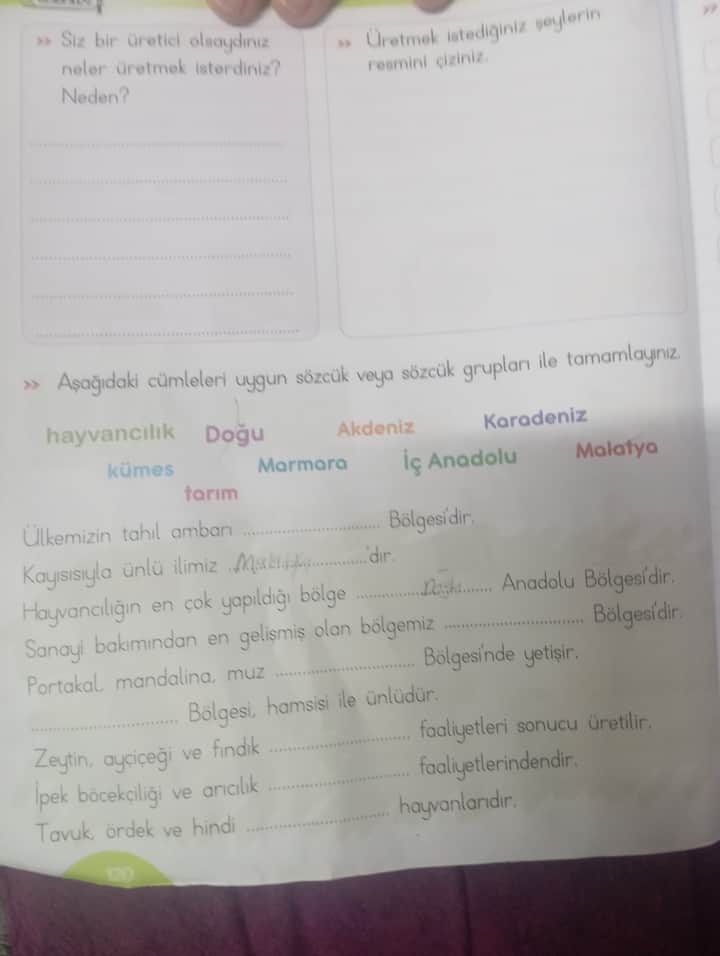 >> Siz bir üretici olsaydınız
neler üretmek isterdiniz?
Neden?
>> Üretmek istediğiniz şeylerin
resmini çiziniz.
>> Aşağıdaki cümleleri uygun sözcük veya sözcük grupları ile tamamlayınız.
hayvancılık Doğu Akdeniz Karadeniz
kümes Marmara İç Anadolu Malatya
tarım
Ülkemizin tahıl ambarı .............................. Bölgesi'dir.
Kayısısıyla ünlü ilimiz ..Malatya............'dır.
Hayvancılığın en çok yapıldığı bölge ..............Doğu....... Anadolu Bölgesi'dir.
Sanayi bakımından en gelişmiş olan bölgemiz .............................. Bölgesi'dir.
Portakal, mandalina, muz .............................. Bölgesi'nde yetişir.
.............................. Bölgesi, hamsisi ile ünlüdür.
Zeytin, ayçiçeği ve fındık .............................. faaliyetleri sonucu üretilir.
İpek böcekçiliği ve arıcılık .............................. faaliyetlerindendir.
Tavuk, ördek ve hindi .............................. hayvanlarıdır.